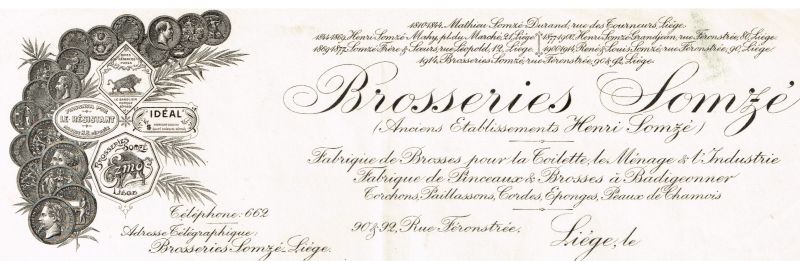 1810-1844. Mathieu Somzé-Durand, rue des Tourneurs, Liège.
1844-1869. Henri Somzé-Mahy, pl. du Marché, 21, Liège
1869-1877. Somzé Frère & Sœurs, rue Léopold, 12, Liège
1877-1900. Henri Somzé-Grandjean, rue Féronstrée, 86, Liège.
1900-1914. René & Louis Somzé, rue Féronstrée, 90, Liège.
1914. Brosseries Somzé, rue Féronstrée, 90 & 92, Liège.
Brosseries Somzé
(Anciens Etablissements Henri Somzé)
Fabrique de Brosses pour la Toilette, le Ménage & l'Industrie
Fabrique de Pinceaux & Brosses à Badigeonner
Torchons, Paillassons, Cordes, Eponges, Peaux de Chamois
90 & 92, Rue Féronstrée.
Liège, le
LE SANGLIER
LE RÉSISTANT
IDÉAL
BROSSERIES SOMZÉ
LIÉGE
Téléphone: 662
Adresse Télégraphique:
Brosseries-Somzé-Liège.